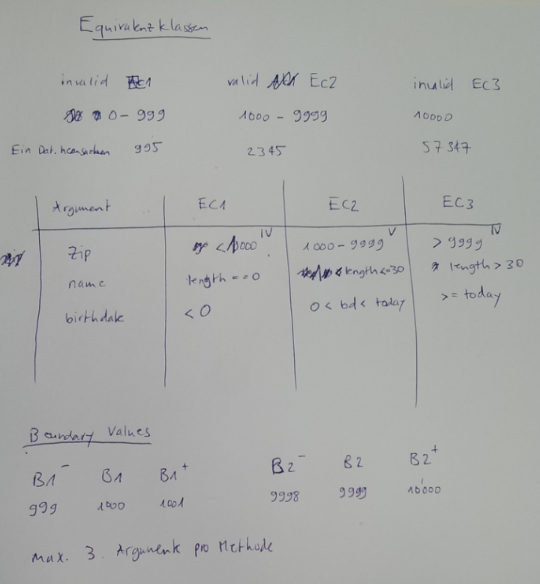 Equivalenzklassen
invalid EC1 valid EC2 invalid EC3
0 - 999 1000 - 9999 10000
Ein Dat. 995 2345 57347
Argument EC1 EC2 EC3
Zip <1000 IV 1000 - 9999 V > 9999 IV
name length == 0 < length <= 30 length > 30
birthdate < 0 0 < bd < today >= today
Boundary Values
B1- B1 B1+ B2- B2 B2+
999 1000 1001 9998 9999 10'000
Max. 3. Argumente pro Methode